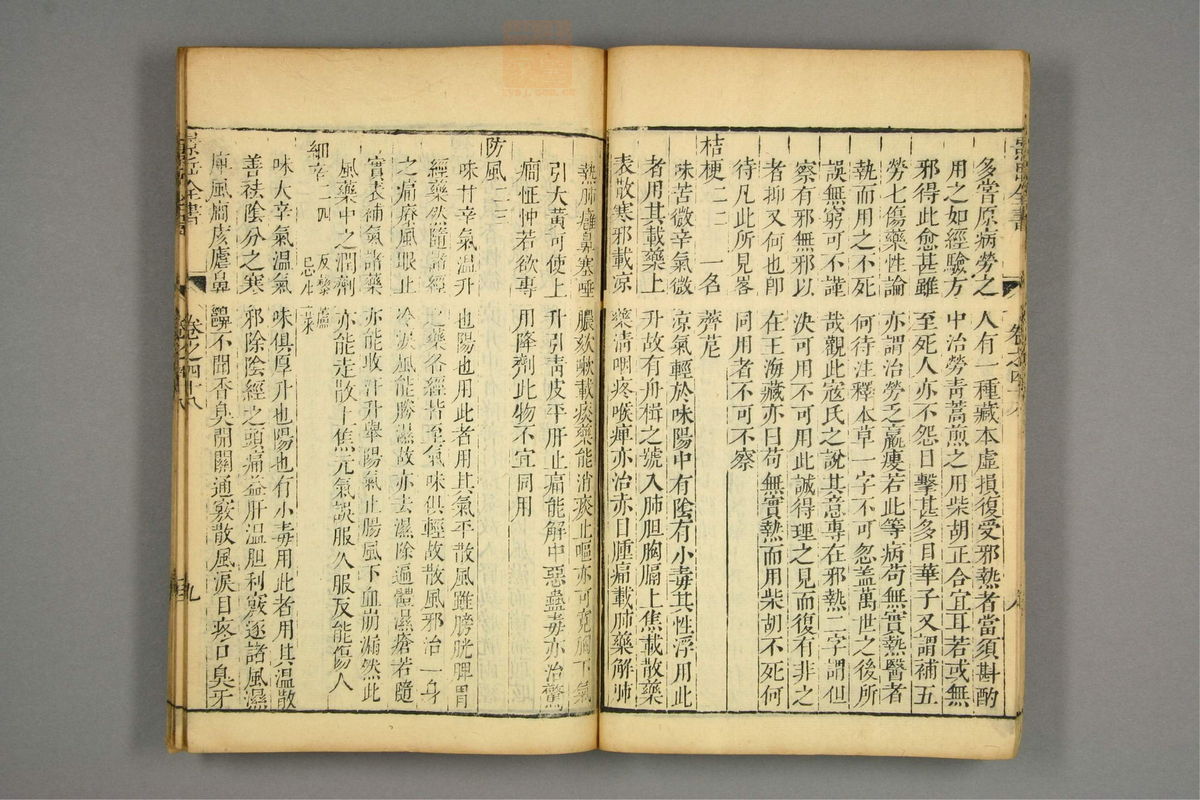 多當原病勞之人有一種藏本虛損復受邪熱者當須斟酌
用之如經驗方中治勞青蒿煎之用柴胡正合宜耳若或無
邪得此愈甚雖至死人亦不怨目擊甚多日華子又謂補五
勞七傷藥性論亦謂治勞乏羸瘦若此等病苟無實熱醫者
執而用之不死何待注釋本草一字不可忽蓋萬世之後所
誤無窮可不謹哉觀此寇氏之說其意專在邪熱二字謂但
察有邪無邪以決可用不可用此誠得理之見而復有非之
者抑又何也即在王海藏亦曰苟無實熱而用柴胡不死何
待凡此所見畧同用者不可不察
桔梗二二 一名薺苨
味苦微辛氣微涼氣輕於味陽中有陰有小毒其性浮用此
者用其載藥上升故有舟楫之號入肺胆胸膈上焦載散藥
表散寒邪載涼藥清咽疼喉痺亦治赤目腫痛載肺藥解肺
熱肺癰鼻塞唾膿欬嗽載痰藥能消痰止嘔亦可寬胸下氣
引大黃可使上升引青皮平肝止痛能解中惡蠱毒亦治驚
癎怔忡若欲專用降劑此物不宜同用
防風二三
味甘辛氣溫升也陽也用此者用其氣平散風雖膀胱脾胃
經藥然隨諸經之藥各經皆至氣味俱輕故散風邪治一身
之痛療風眼止冷淚風能勝濕故亦去濕除遍體濕瘡若隨
實表補氣諸藥亦能收汗升舉陽氣止腸風下血崩漏然此
風藥中之潤劑亦能走散上焦元氣誤服久服反能傷人
細辛二四 反藜蘆忌生菜
味大辛氣溫氣味俱厚升也陽也有小毒用此者用其溫散
善祛陰分之寒邪除陰經之頭痛益肝溫胆利竅逐諸風濕
痺風癎痎瘧鼻齆不聞香臭開關通竅散風淚目疼口臭牙
景岳全書 卷之四十八 八
景岳全書 卷之四十八 九